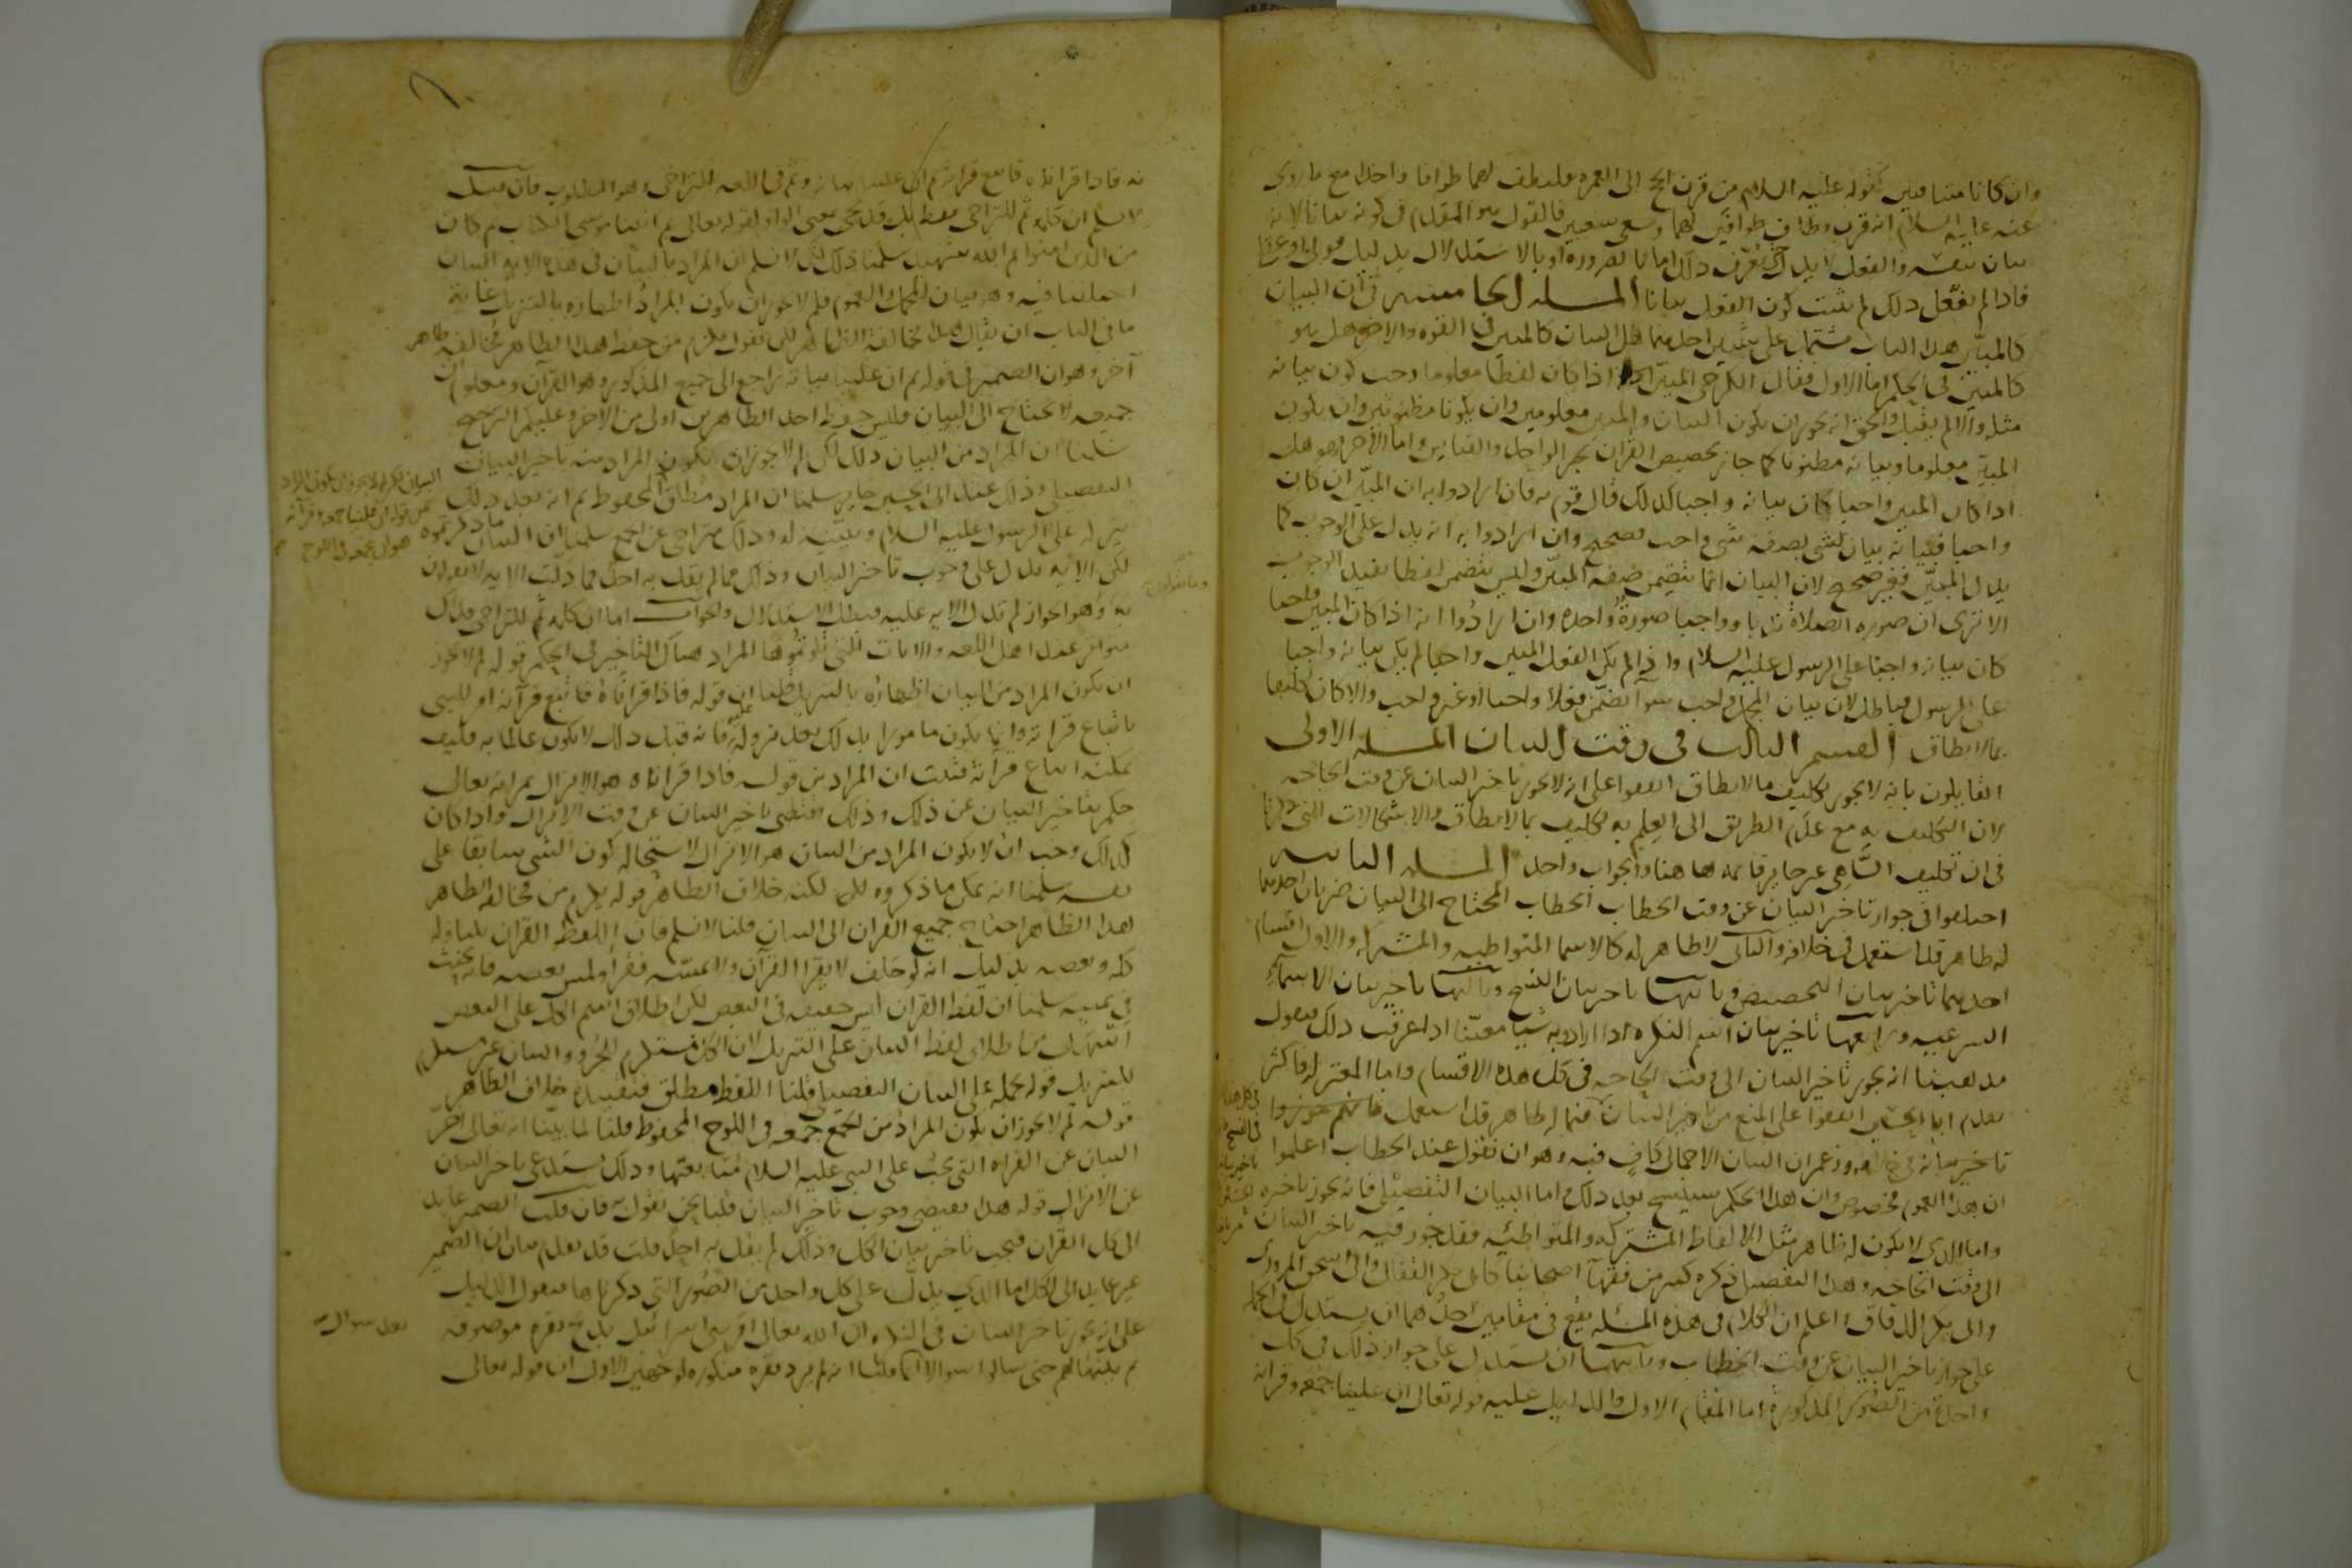 وان كانا متنافيين كقوله عليه السلام من قرن الحج الى العمرة فليطف لهما طوافا واحدا مع ما روى
عنه عليه السلام انه قرن وطاف طوافين لهما وسعى سعيين فالقول هو المقدم في كونه بيانا لانه
بيان بنفسه والفعل لا يدل حتى يعرف ذلك اما بالضرورة او بالاستدلال بدليل قولي او عقلي
فاذا لم يعقل ذلك لم يثبت كون الفعل بيانا المسلة الخامسة في ان البيان
كالمبين هذا الباب مشتمل على شيئين احدهما هل البيان كالمبين في القوة والاخر هل هو
كالمبين في الحكم اما الاول فقال الكرخي المبين اذا كان لفظا معلوما وجب كون بيانه
مثله والا لم يقبل والحق انه يجوز ان يكون البيان والمبين معلومين وان يكونا مظنونين وان يكون
المبين معلوما وبيانه مظنونا كما جاز تخصيص القران بخبر الواحد والقياس واما الاخر فهو هل
اذا كان المبين واجبا كان بيانه واجبا كذلك قال قوم به فان ارادوا به ان المبين ان كان
واجبا فبيانه بيان لشي بصفة شي واجب فصحيح وان ارادوا به انه يدل على الوجوب كما
يدل المبين فغير صحيح لان البيان انما يتضمن صفة المبين وليس يتضمن لفظا يفيد الوجوب
الا ترى ان صورة الصلاة ندبا وواجبا صورة واحدة وان ارادوا انه اذا كان المبين واجبا
كان بيانه واجبا على الرسول عليه السلام واذا لم يكن الفعل المبين واجبا لم يكن بيانه واجبا
على الرسول فباطل لان بيان المجمل واجب سوا تضمن فعلا واجبا او غير واجب والا كان تكليفا
بما لا يطاق القسم الثالث في وقت البيان المسلة الاولى
القايلون بانه لا يجوز تكليف ما لا يطاق اتفقوا على انه لا يجوز تاخير البيان عن وقت الحاجه
لان التكليف به مع عدم الطريق الى العلم به تكليف بما لا يطاق والاشكالات التي ذكرنا
في ان تكليف الساهي غير جايز قايمة هاهنا والجواب واحد المسلة الثانية
اختلفوا في جواز تاخير البيان عن وقت الخطاب الخطاب المحتاج الى البيان ضربان احدهما
له ظاهر قد استعمل في خلافه والثاني لا ظاهر له كالاسما المتواطيه والمشتركه والاول اقسام
احدها تاخير بيان التخصيص وثانيها تاخير بيان النسخ وثالثها تاخير بيان الاسماء
الشرعيه ورابعها تاخير بيان اسم النكره اذا اراد به شيا معينا اذا عرفت ذلك فنقول
مذهبنا انه يجوز تاخير البيان الى وقت الحاجه في كل هذه الاقسام واما المعتزله فاكثر
تقدم ابا الحسين اتفقوا على المنع من تاخير البيان فيما له ظاهر قد استعمل فانهم جوزوا
تاخير بيانه وزعم ان البيان الاجمالي كاف فيه وهو ان نقول عند الخطاب اعلموا
ان هذا العموم مخصوص وان هذا الحكم سينسخ بعد ذلك واما البيان التفصيلي فانه يجوز تاخيره
واما الذي لا يكون له ظاهر مثل الالفاظ المشتركه والمتواطئيه فقد جوز فيه تاخير البيان
الى وقت الحاجه وهذا التفصيل ذكره كثير من فقهآ اصحابنا كابي بكر القفال وابي اسحق المروزي
وابي بكر الدقاق واعلم ان الكلام في هذه المسئله يقع في مقامين احدهما ان يستدل في الجمله
على جواز تاخير البيان عن وقت الخطاب وثانيهما ان يستدل على جواز ذلك في كل
واحدة من الصور المذكورة اما المقام الاول والدليل عليه قوله تعالى ان علينا جمعه وقرانه
نه فاذا قراناه فاتبع قرانه ثم ان علينا بيانه وثم في اللغه للتراخي وهو المطلوب فان قيل
لا نسلم ان كلمة ثم للتراخي فقط بل قد تجي بمعنى الواو لقوله تعالى ثم اتينا موسى الكتاب ثم كان
من الذين امنوا ثم الله شهيد سلمنا ذلك لكن لا نسلم ان المراد بالبيان في هذه الايه البيان
اختلفنا فيه وهو بيان المجمل والعموم فلم لا يجوز ان يكون المراد اظهاره بالتنزيل غاية
ما في الباب ان يقال هذا مخالفة الظاهر لكن نقول يلزم من حفظ هذا الظاهر مخالفة ظاهر
آخر وهو ان الضمير في قوله ثم ان علينا بيانه راجع الى جميع المذكور وهو القرآن ومعلوم ان
جميعه لا يحتاج الى البيان فليس حفظ احد الظاهرين اولى من الاخر وعليكم الترجيح
سلمنا ان المراد من البيان ذلك لكن لم لا يجوز ان يكون المراد منه تاخير البيان
التفصيلي وذلك عند ابي الحسين جايز سلمنا ان المراد مطلق المحفوظ ثم انه بعد ذلك
ينزله على الرسول عليه السلام ويبينه له وذلك متراخي عن الجمع سلمنا ان البيان ما ذكرتموه
لكن الايه تدل على وجوب تاخير البيان وذلك مما لم يقل به احد فما دلت الايه لا يقولون
به وهو الجواز لم تدل الايه عليه فبطل الاستدلال والجواب اما ان كلمة ثم للتراخي فذلك
متواتر عند اهل اللغه والايات التي تلوتموها المراد هناك التاخير في الحكم قوله لم لا يجوز
ان يكون المراد من البيان اظهاره بالتنزيل قلنا ان قوله فاذا قراناه فاتبع قرآنه امر للنبي
باتباع قرانه وانما يكون مامورا بذلك بعد نزوله عليه فانه قبل ذلك لا يكون عالما به فكيف
يمكنه اتباع قرآنه فثبت ان المراد من قوله فاذا قراناه هو الانزال ثم انه تعالى
حكم بتاخير البيان عن ذلك وذلك اقتضى تاخير البيان عن وقت الانزال واذا كان
كذلك وجب ان لا يكون المراد من البيان هو الانزال لاستحالة كون الشي سابقا على
نفسه سلمنا انه يمكن ما ذكروه لكنه خلاف الظاهر قوله يلزم من مخالفه الظاهر
لهذا الظاهر احتياج جميع القران الى البيان قلنا لا نسلم فان اللفظه القران يتناوله
كله وبعضه بدليل انه لو حلف لا يقرا القرآن ولا يمسه فقرا ولمس بعضه فانه يحنث
في يمينه سلمنا ان لفظ القران ليس حقيقه في البعض لكن اطلاق اسم الكل على البعض
اسهل من اطلاق لفظ البيان على التنزيل لان الكل مستلزم الجزو والبيان غير مستلزم
للتنزيل قوله نحمله على البيان التفصيلي قلنا اللفظ مطلق فتقييده خلاف الظاهر
قوله لم لا يجوز ان يكون المراد من الجمع جمعه في اللوح المحفوظ قلنا لما بينا انه تعالى اخر
البيان عن القراه التي يجب على النبي عليه السلام متابعتها وذلك يستدعي تاخير البيان
عن الانزال قوله هذا يقتضي وجوب تاخير البيان قلنا نحن نقول به فان قلت الضمير عايد
الى كل القران فيجب تاخير بيان الكل وذلك لم يقل به احد قلت قد تقدم بيان ان الضمير
غير عايد الى الكل اما الذي يدل على كل واحد من الصور التي ذكرناها فنقول الدليل
على انه يجوز تاخير البيان في النكره ان الله تعالى امر بني اسرائيل بذبح بقره موصوفه
ثم بينها لهم حتى سالوا سوالا انما قلنا انه لم يرد بقره منكوره لوجهين الاول ان قوله تعالى